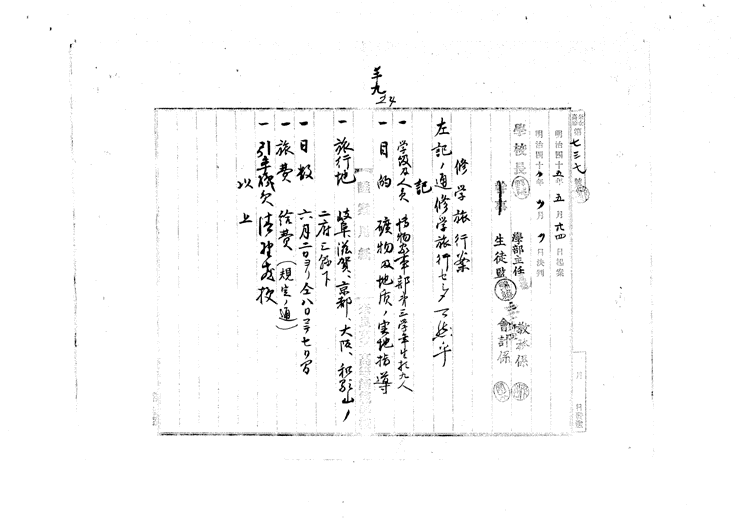 第七三七號
明治四十五年五月六四日起案
明治四十 年 月 日決判
學校長
學部主任
教務係
生徒監
會計係
月 日
修学旅行案
左記ノ通修学旅行セシメ可然乎
記
一 学級及人員 博物家事部第三学年生拾九人
一 目的 礦物及地质ノ実地指導
一 旅行地 岐阜、滋賀、京都、大阪、和歌山ノ
二府三縣下
一 日数 六月二日ヨリ仝八日マデ七日間
一 旅費 給費(規定ノ通)
一 引率
以上